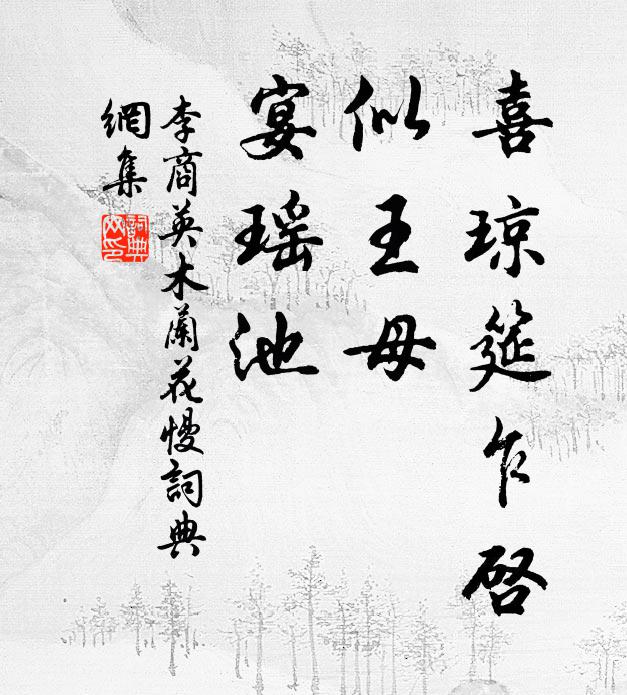 喜琼筵乍启
似王母
宴瑶池
李商英木蘭花慢詞典
網集
詞典
网印